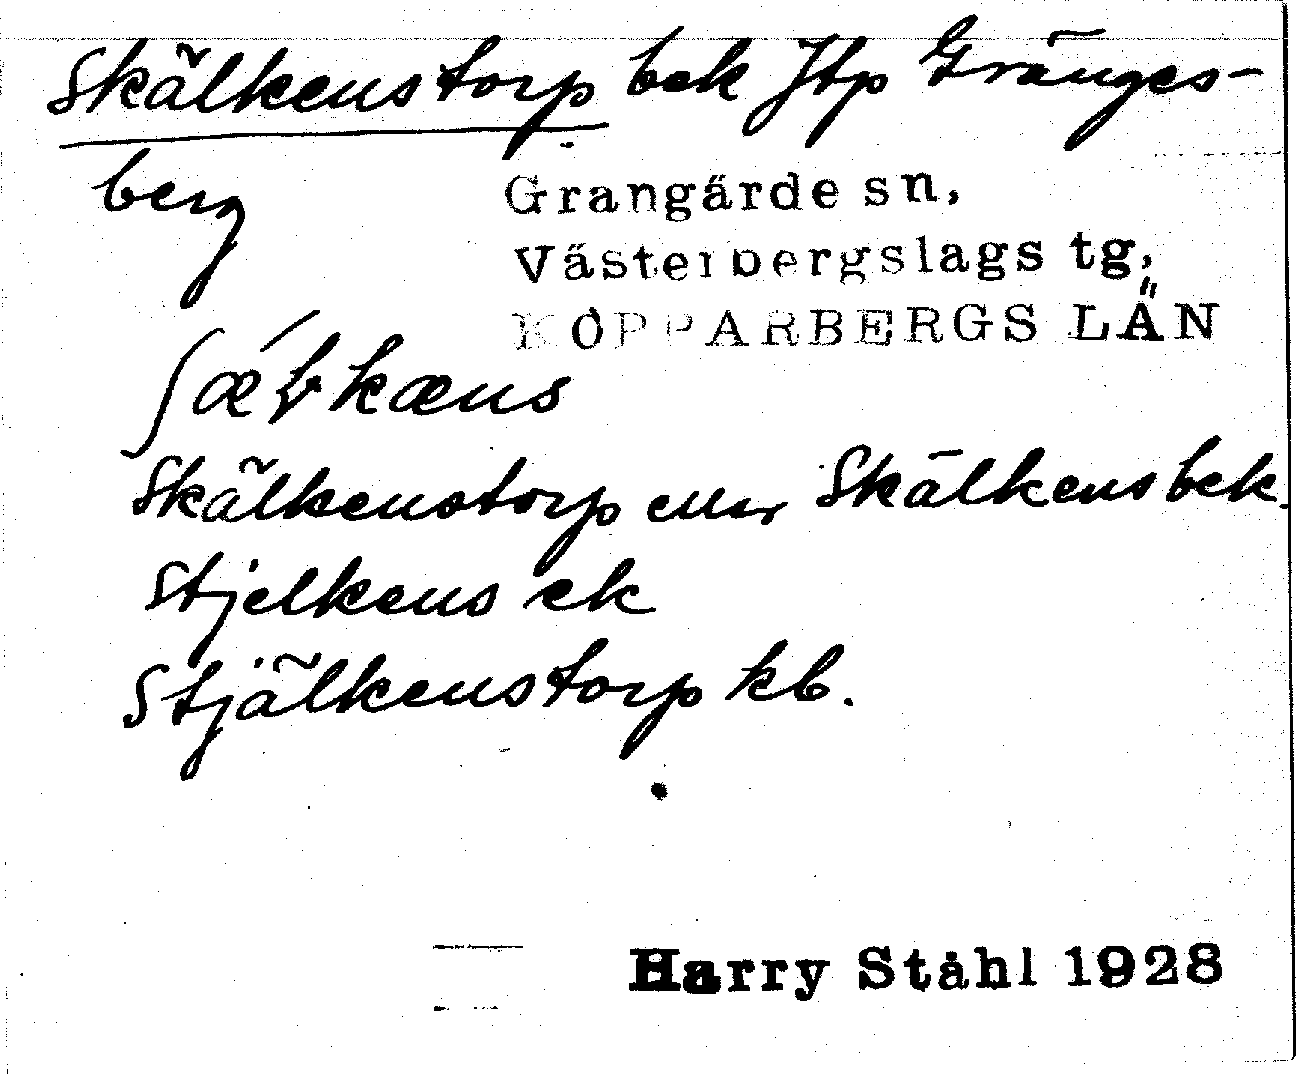 Skälkenstorp bek Jtp Gränges-
berg
Grangärde sn,
Västerbergslags tg,
KOPPARBERGS LÄN
Skälkenstorp eller Skälkensbek.
Stjelkens ek
Stjälkenstorp kb.
Harry Ståhl 1928